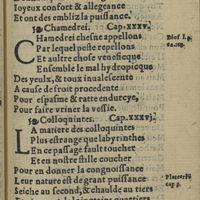 Joyeux confort & allegeance
Et ont des embliz la puissance.
Chamedrei. Cap. xxxv.
CHamedrei chesne appellons
Par lequel peste repellons
Et aultre chose veneficque
Ensemble le mal hydropicque
Des yeulx, & toux inualescente
A cause de froit procedente
Pour espasme & ratte endurcye,
Pour faire vriner la vessie.
Colloquintes. Cap. xxxvj.
LA matiere des colloquintes
Plus estrange que labyrinthes
En ce passage fault toucher
Et en nostre stille coucher
Pour en donner la congnoissance
Leur nature est de grant puissance
Seiche au second, & chaulde au tiers